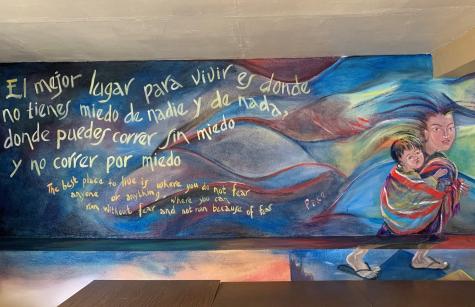 El mejor lugar para vivir es donde
no tienes miedo de nadie y de nada,
donde puedes correr sin miedo
y no correr por miedo
The best place to live is where you do not fear
anyone or anything, where you can
run without fear and not run because of fear